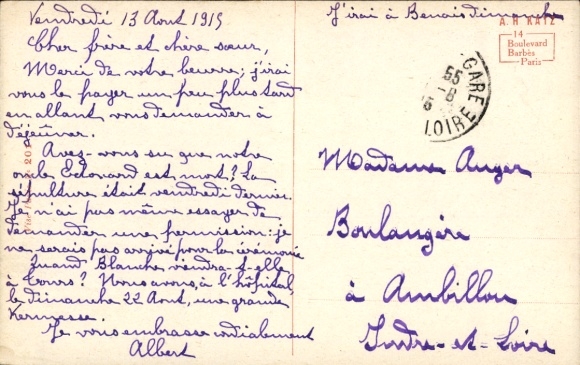 Vendredi 13 Aout 1915
Cher frère et chère sœur,
Merci de votre beurre; j'irai
vous le payer un peu plus tard
en allant vous demander à
déjeûner.
Avez-vous su que notre
oncle Edouard est mort? La
sépulture était vendredi dernier.
Je n'ai pas même essayer de
demander une permission: je
ne serais pas arrivé pour la cérémonie
Quand Blanche viendra-t-elle
à Tours? Nous avons, à l'hôpital,
le dimanche 22 Aout, une grande
Kermesse.
Je vous embrasse cordialement
Albert
J'irai à Benais dimanche
A. H KATZ
14
Boulevard
Barbès
Paris
GARE
LOIRE
Madame Auger
Boulangère
à Ambillou
Indre-et-Loire